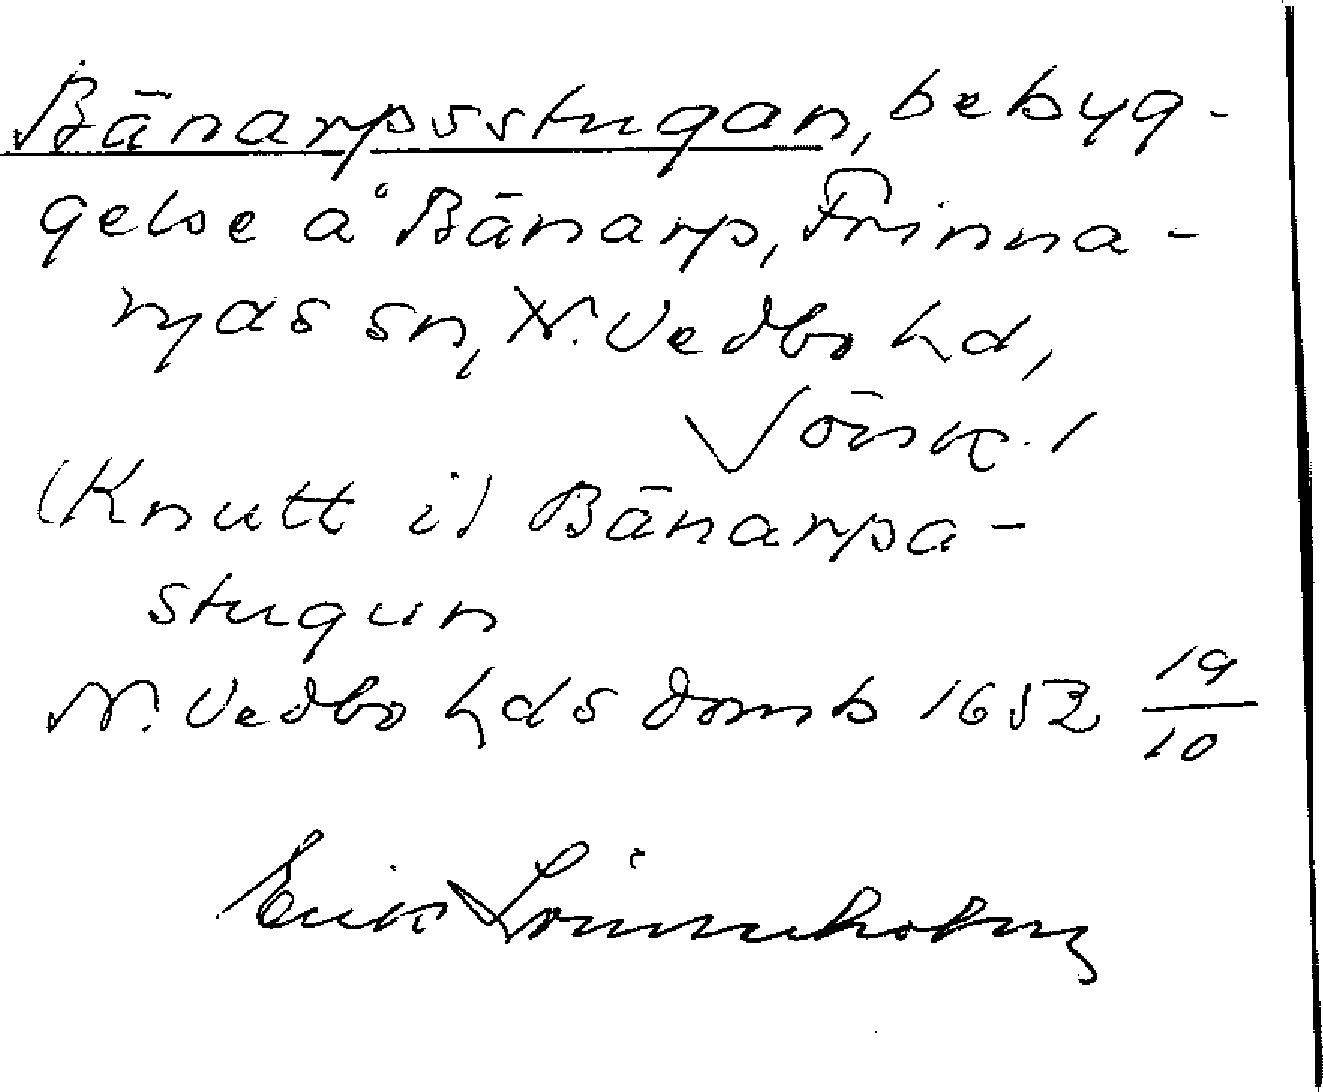 Bänarpsstugan, bebyg-
gelse å Bänarp, Frinna-
ryds sn, N. Vedbo hd,
Jönk.
(Knutt i) Bänarpa-
stugun
N. Vedbo hds domb 1652 19/10
Erik Lönnholm